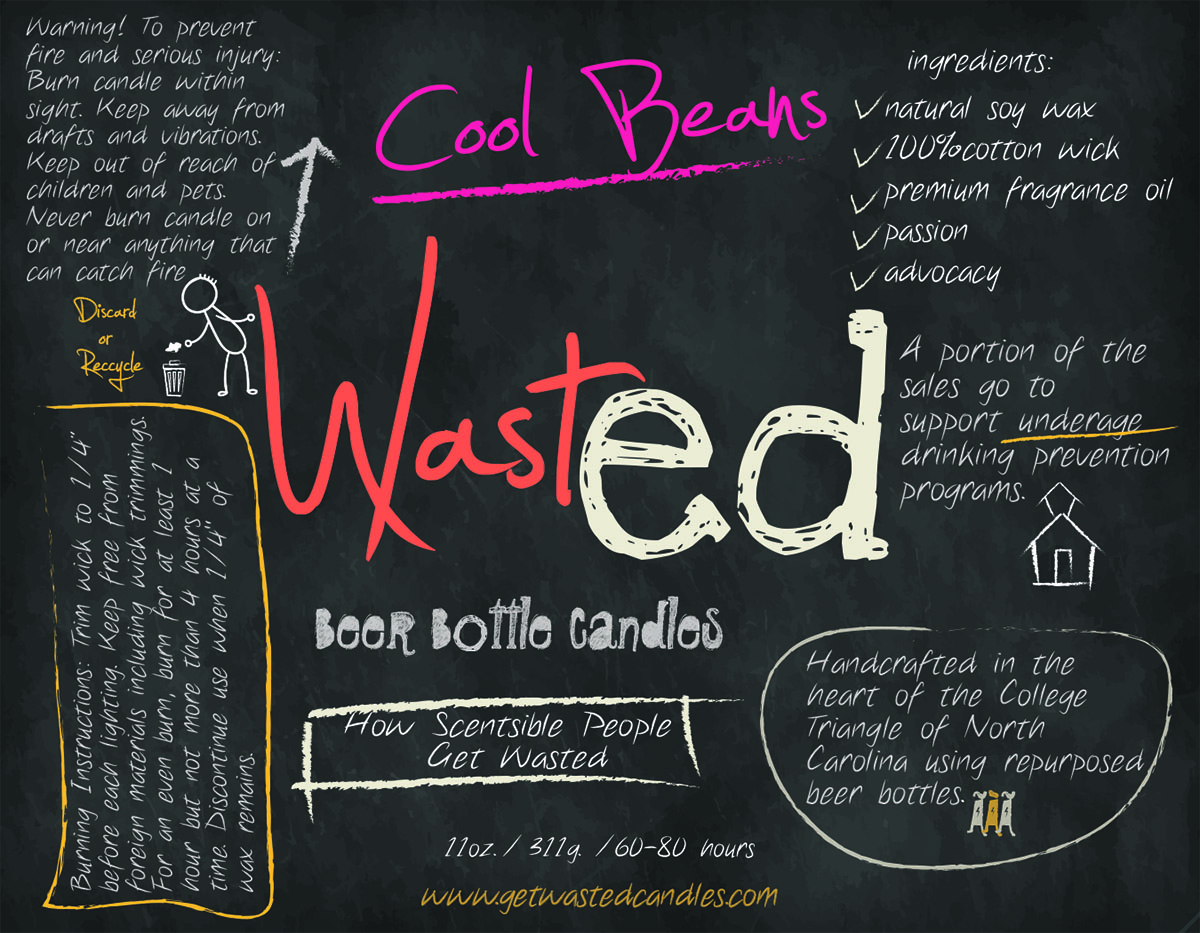 Warning! To prevent
fire and serious injury:
Burn candle within
sight. Keep away from
drafts and vibrations.
Keep out of reach of
children and pets.
Never burn candle on
or near anything that
can catch fire
Discard
or
Reccycle
Burning Instructions: Trim wick to 1/4"
before each lighting. Keep free from
foreign materials including wick trimmings.
For an even burn, burn for at least 1
hour but not more than 4 hours at a
time. Discontinue use when 1/4" of
wax remains.
Cool Beans
Wasted
Beer Bottle Candles
How Scentsible People
Get Wasted
11oz. / 311g. / 60-80 hours
www.getwastedcandles.com
ingredients:
natural soy wax
100%cotton wick
premium fragrance oil
passion
advocacy
A portion of the
sales go to
support underage
drinking prevention
programs.
Handcrafted in the
heart of the College
Triangle of North
Carolina using repurposed
beer bottles.